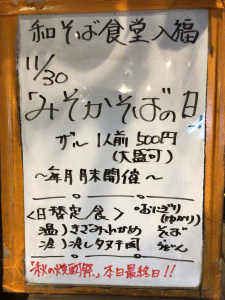 和そば食堂入福
11/30
「みそかそばの日」
ザル 1人前 500円
(大盛可)
〜毎月月末開催〜
<日替定食> おにぎり
(ゆかり)
温)きざみわかめ そば
冷)冷しタヌキ風 うどん
「秋の収穫祭」本日最終日!!